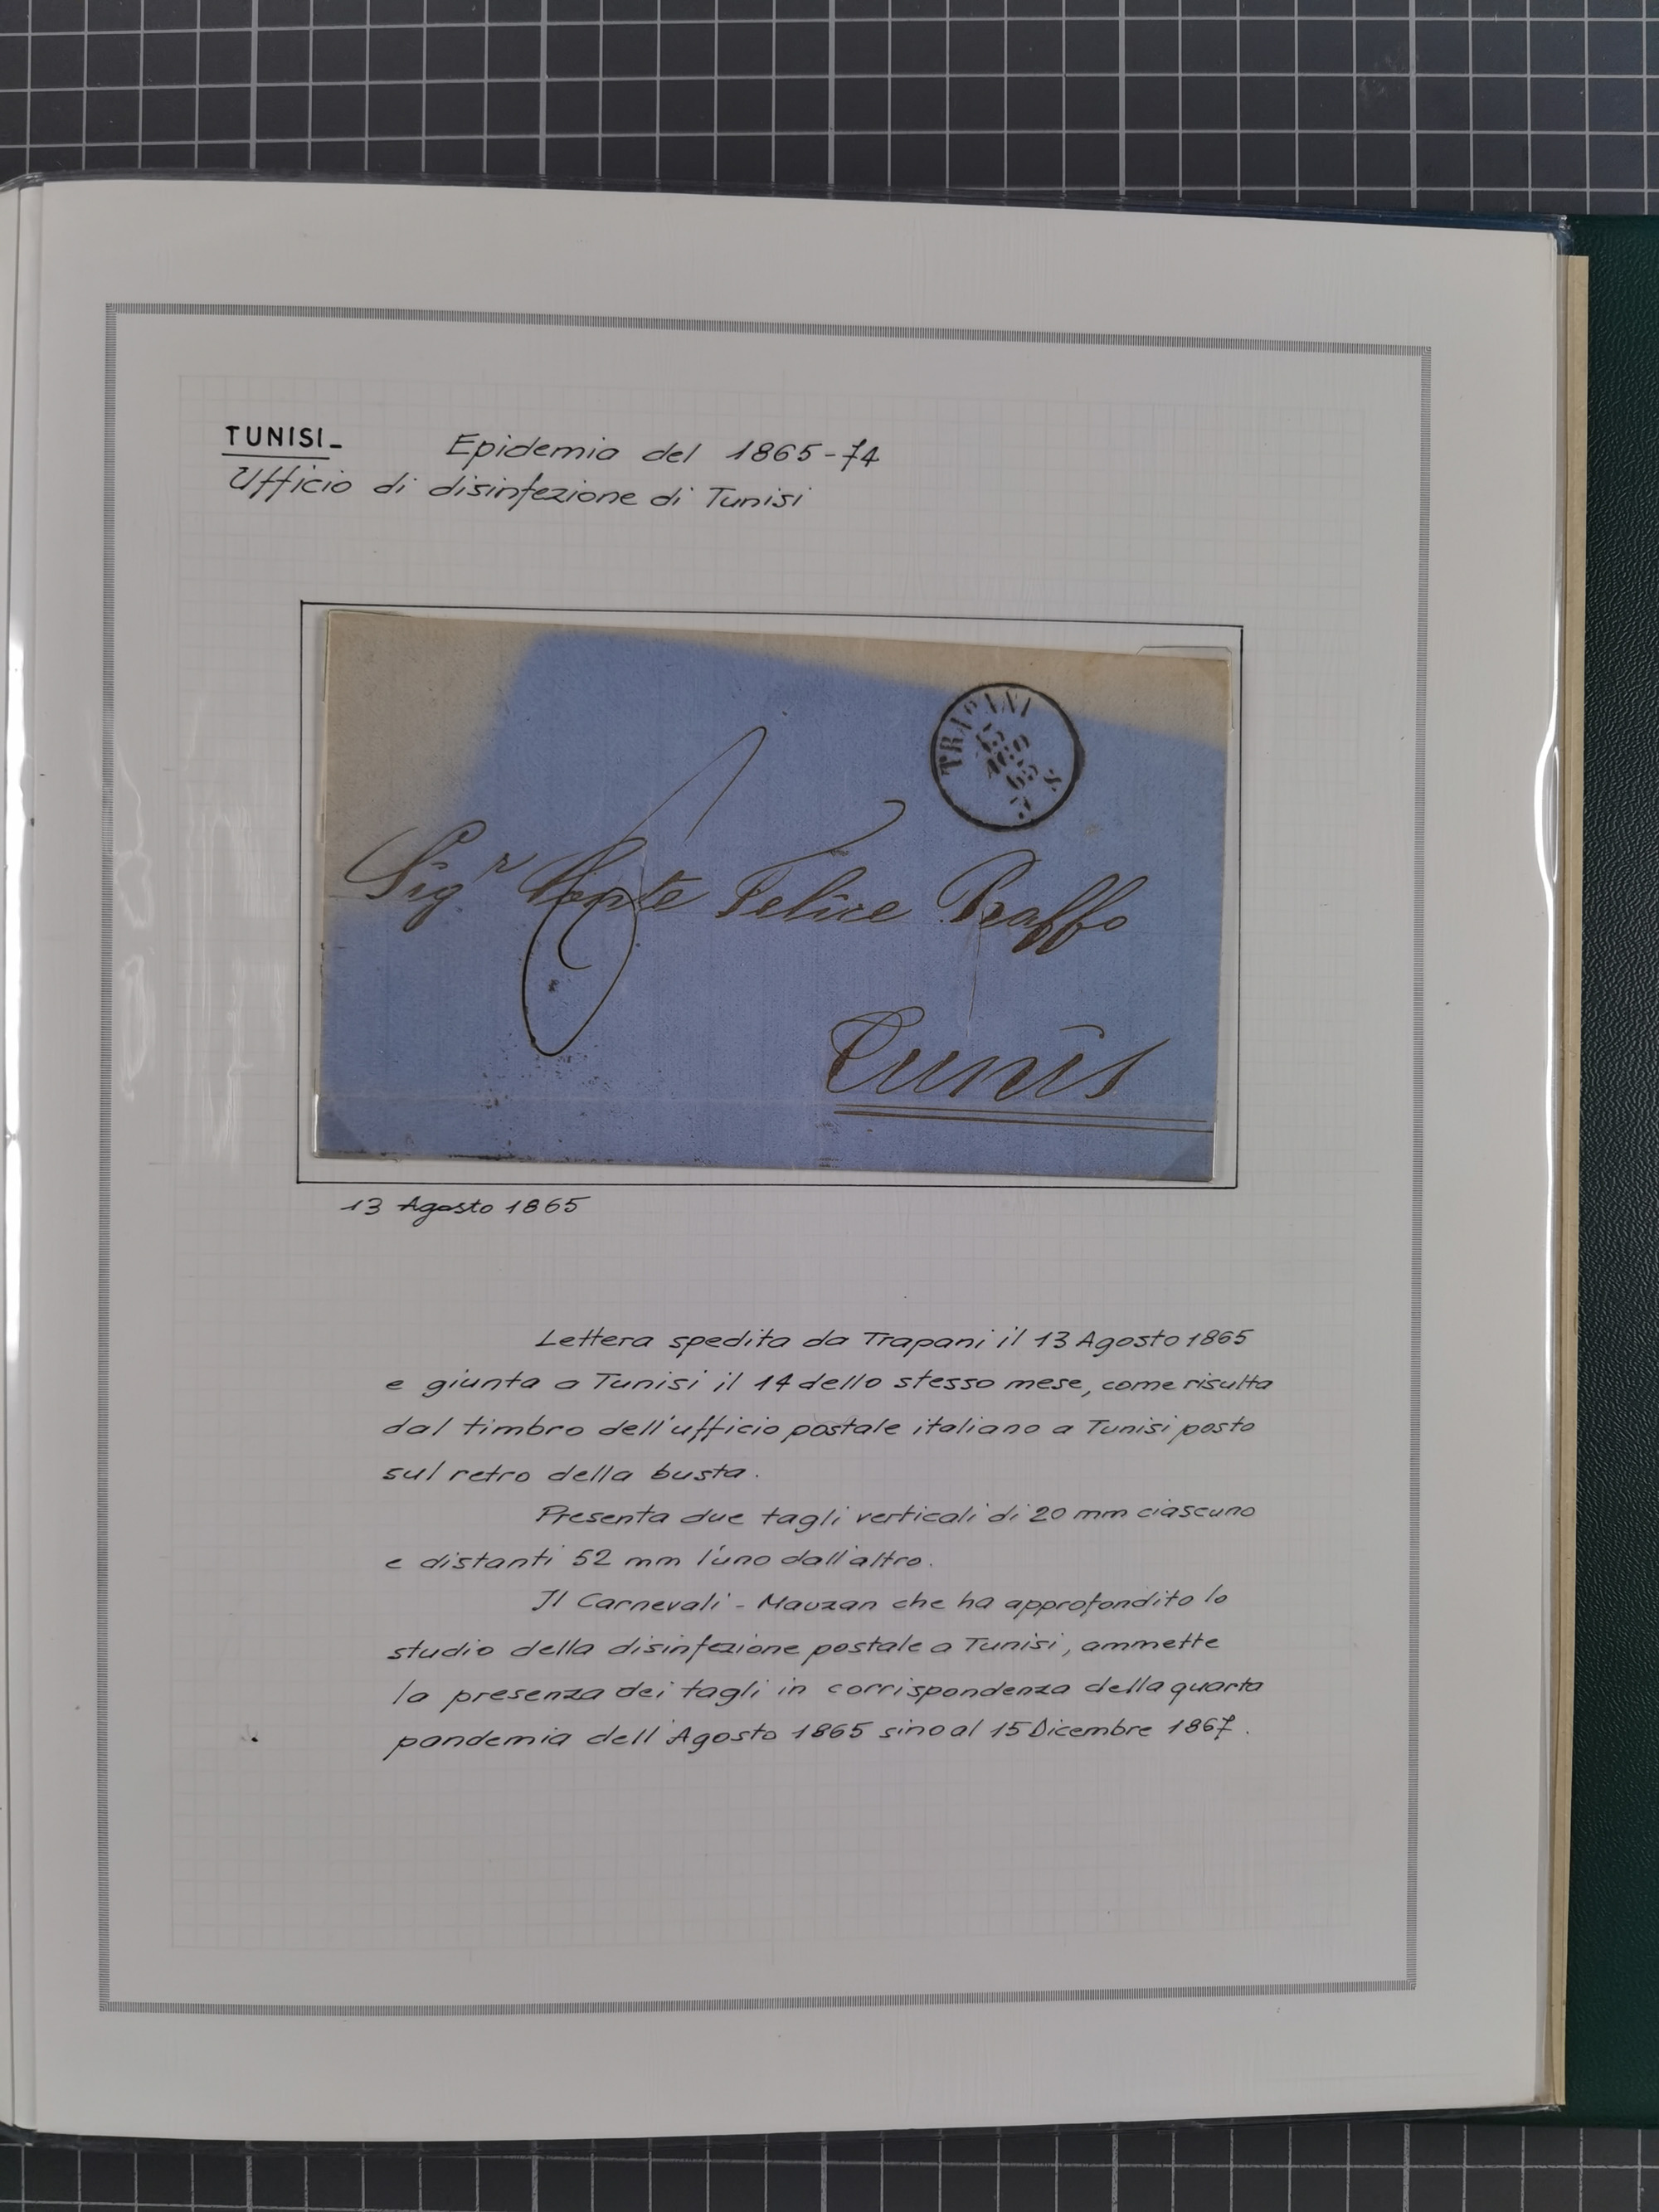 TUNISI_ Epidemia del 1865-74
Ufficio di disinfezione di Tunisi
TRAPANI
13 AGO 65
Sigr Conte Felice Raffo
Tunis
13 Agosto 1865
Lettera spedita da Trapani il 13 Agosto 1865
e giunta a Tunisi il 14 dello stesso mese, come risulta
dal timbro dell'ufficio postale italiano a Tunisi posto
sul retro della busta.
Presenta due tagli verticali di 20 mm ciascuno
e distanti 52 mm l'uno dall'altro.
Il Carnevali - Mauzan che ha approfondito lo
studio della disinfezione postale a Tunisi, ammette
la presenza dei tagli in corrispondenza della quarta
pandemia dell'Agosto 1865 sino al 15 Dicembre 1867.